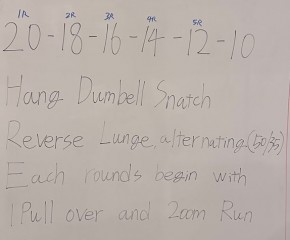 1R 2R 3R 4R 5R
20-18-16-14-12-10
Hang Dumbell Snatch
Reverse Lunge, alternating (50/35)
Each rounds begin with
1 Pull over and 200m Run